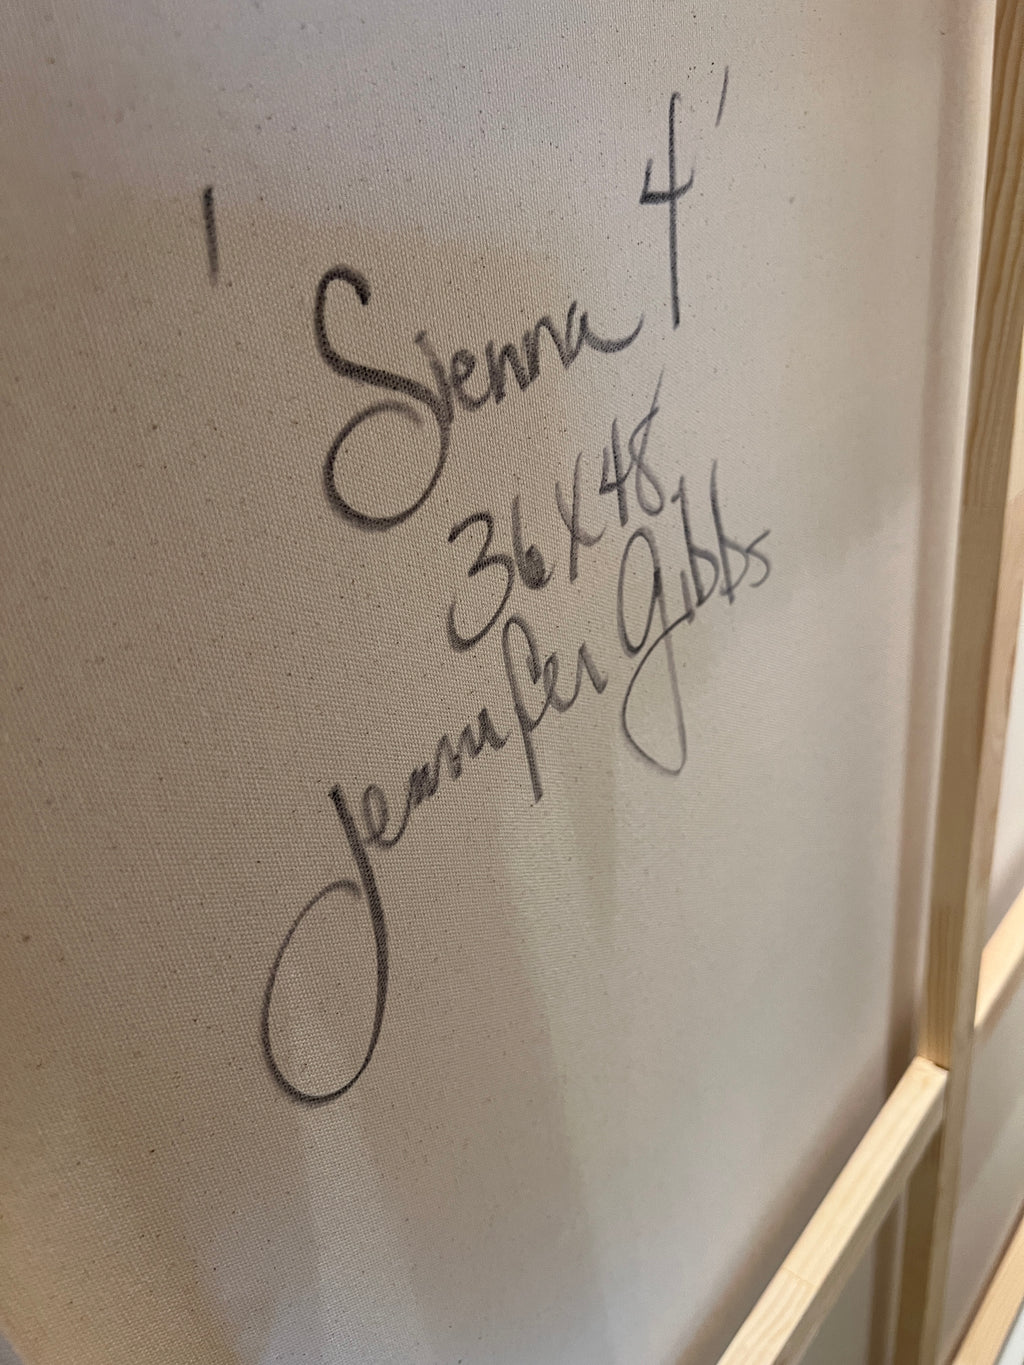 'Sienna 4'
36 x 48
Jennifer Gibbs